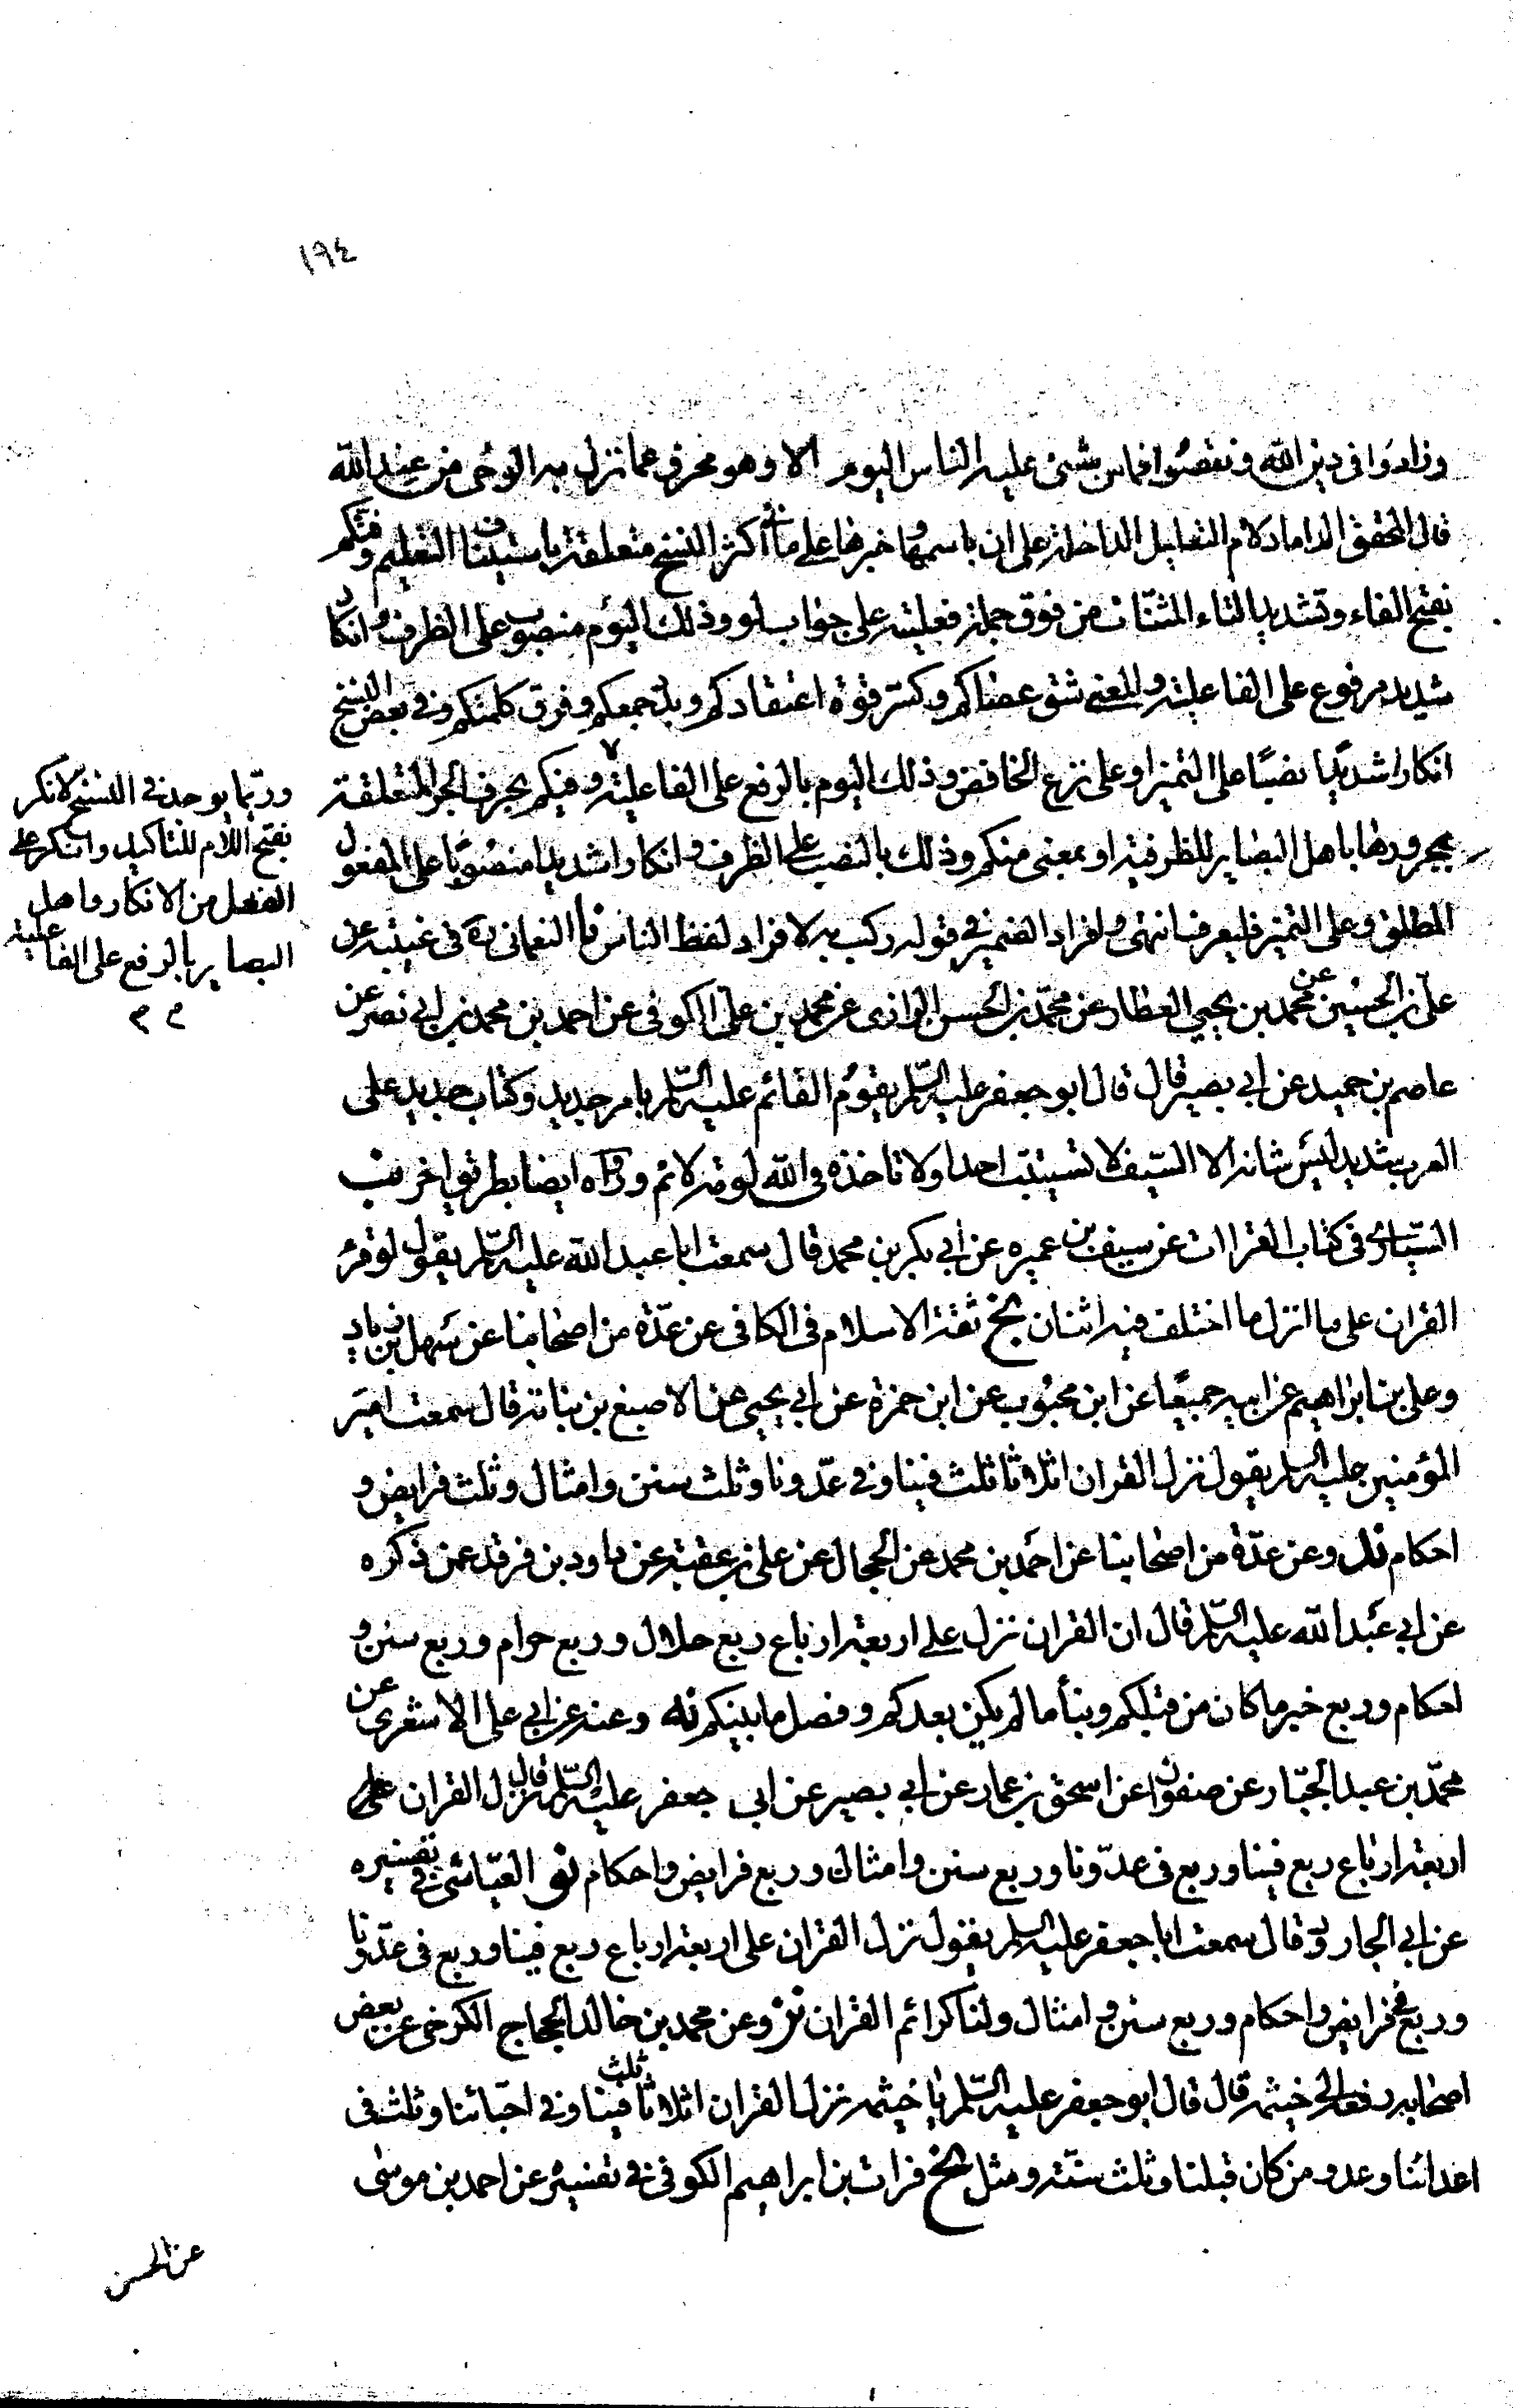 ١٩٤
وزادوا في دين الله ونقصوا فما من شئ عليه الناس اليوم الا وهو محرف عما نزل به الوحي من عند الله
قال المحقق الداماد لام التعليل الداخلة على ان باسمها وخبرها على ما في أكثر النسخ متعلقة باستيناف التعليم وفتّكم
بفتح الفاء وتشديد التاء المثناة من فوق جملة فعلية على جواب لو وذلك اليوم منصوب على الظرف وانكار
شديد مرفوع على الفاعلية والمعنى شق عصاكم وكسر قوة اعتقادكم وبدّد جمعكم وفرق كلمتكم وفي بعض النسخ
انكارا شديدا نصبًا على التميز او على نزع الخافض وذلك اليوم بالرفع على الفاعلية وفيكم بحرف الجر المتعلقة
بمجرورها باهل البصاير للظرفية او بمعنى منكم وذلك بالنصب على الظرف وانكارا شديدا منصوبًا على المفعول
المطلق وعلى التميز فليعرف انتهى وافراد الضمير في قوله ركب به لافراد لفظ الناس النعماني ره في غيبته عن
علي بن الحسين عن محمد بن يحيى العطار عن محمد بن الحسن الرازي عن محمد بن علي الكوفي عن احمد بن محمد بن ابي نصر عن
عاصم بن حميد عن ابي بصير قال قال ابو جعفر عليه السلم يقوم القائم عليه السلم بامر جديد وكتاب جديد على
العرب شديد ليس شانه الا السيف لا يستتيب احدا ولا تاخذه في الله لومة لائم ورواه ايضا بطريق اخر
السياري في كتاب القراات عن سيف بن عميره عن ابي بكر بن محمد قال سمعت ابا عبد الله عليه السلم يقول لو قرئ
القران على ما انزل ما اختلف فيه اثنان ثقة الاسلام في الكافي عن عدّة من اصحابنا عن سهل بن زياد
وعلي بن ابراهيم عن ابيه جميعًا عن ابن محبوب عن ابن حمزة عن ابي يحيى عن الاصبغ بن نباتة قال سمعت امير
المؤمنين عليه السلم يقول نزل القران اثلاثا ثلث فينا وفي عدّونا وثلث سنن وامثال وثلث فرايض و
احكام وعن عدّة من اصحابنا عن احمد بن محمد عن الحجال عن علي بن عقبة عن داود بن فرقد عمن ذكره
عن ابي عبد الله عليه السلم قال ان القران نزل على اربعة ارباع ربع حلال وربع حرام وربع سنن و
احكام وربع خبر ما كان من قبلكم ونبأ ما لم يكن بعدكم وفصل ما بينكم وعنه عن ابي علي الاشعري عن
محمّد بن عبد الجبّار عن صفوان عن اسحق بن عمار عن ابي بصير عن ابي جعفر عليه السلم قال نزل القران على
اربعة ارباع ربع فينا وربع في عدّونا وربع سنن وامثال وربع فرايض واحكام العيّاشي في تفسيره
عن ابي الجارود قال سمعت ابا جعفر عليه السلم يقول نزل القران على اربعة ارباع ربع فينا وربع في عدّونا
وربع في فرايض واحكام وربع سنن وامثال ولنا كرائم القران وعن محمد بن خالد الحجاج الكرخي عن بعض
اصحابه رفعه الى خيثمه قال قال ابو جعفر عليه السلم يا خيثمه نزل القران اثلاثا ثلث فينا وفي احبّائنا وثلث في
اعدائنا وعدو من كان قبلنا وثلث سنّة ومثل فرات بن ابراهيم الكوفي في تفسيره عن احمد بن موسى
عن الحسن
وربّما يوجد في النسخ لانكر
بفتح اللام للتأكيد وانكر على
الفعل من الانكار واهل
البصاير بالرفع على الفاعلية